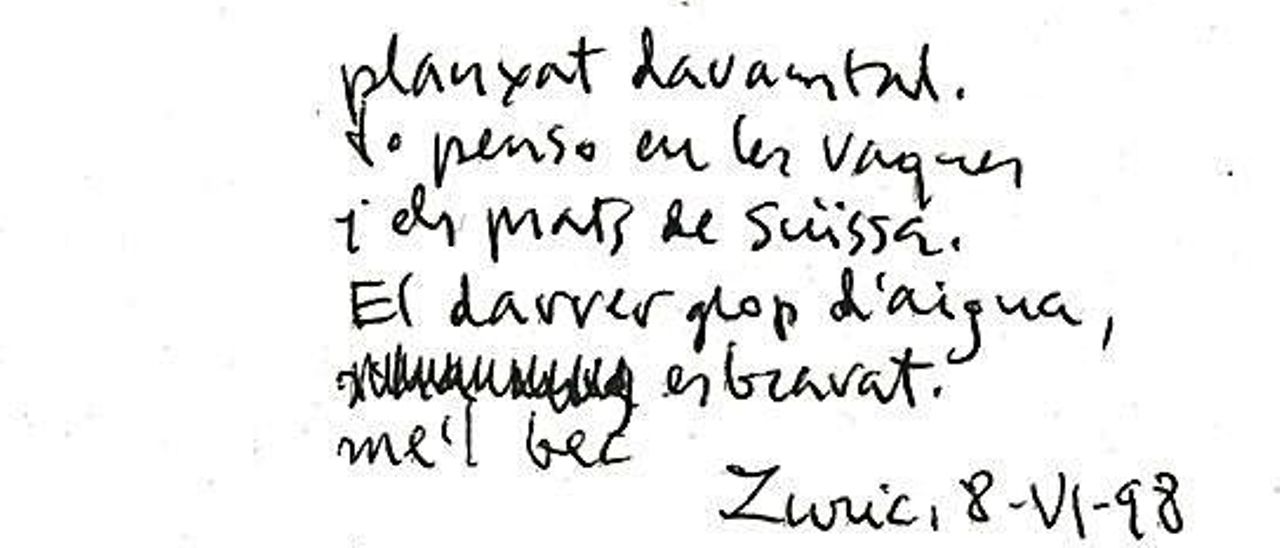 planxat davantal.
Jo penso en les vaques
i els prats de Suïssa.
El darrer glop d'aigua,
esbravat.
me'l bec
Zuric, 8-VI-98